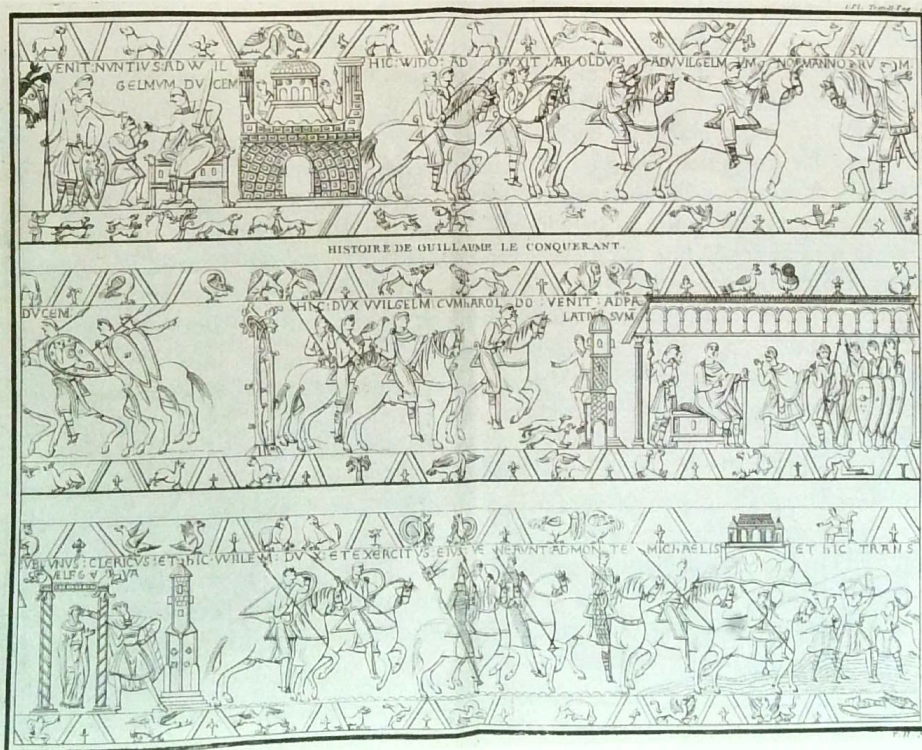 VENIT: NUNTIUS: AD WIL
GELMUM DUCEM
HIC: WIDO: AD DUXIT hAROLDUM AD VVILGELMUM: NORMANNORUM:
HISTOIRE DE GUILLAUME LE CONQUERANT.
DUCEM
HIC: DUX VVILGELM: CUM hAROLDO: VENIT: AD PA
LATIUM SUUM
UBI: UNUS: CLERICUS: ET:
ÆLFGYVA
hIC: VVILLEM: DUX: ET EXERCITUS: EIUS: VENERUNT: AD MONTE MICHAELIS
ET hIC TRANS